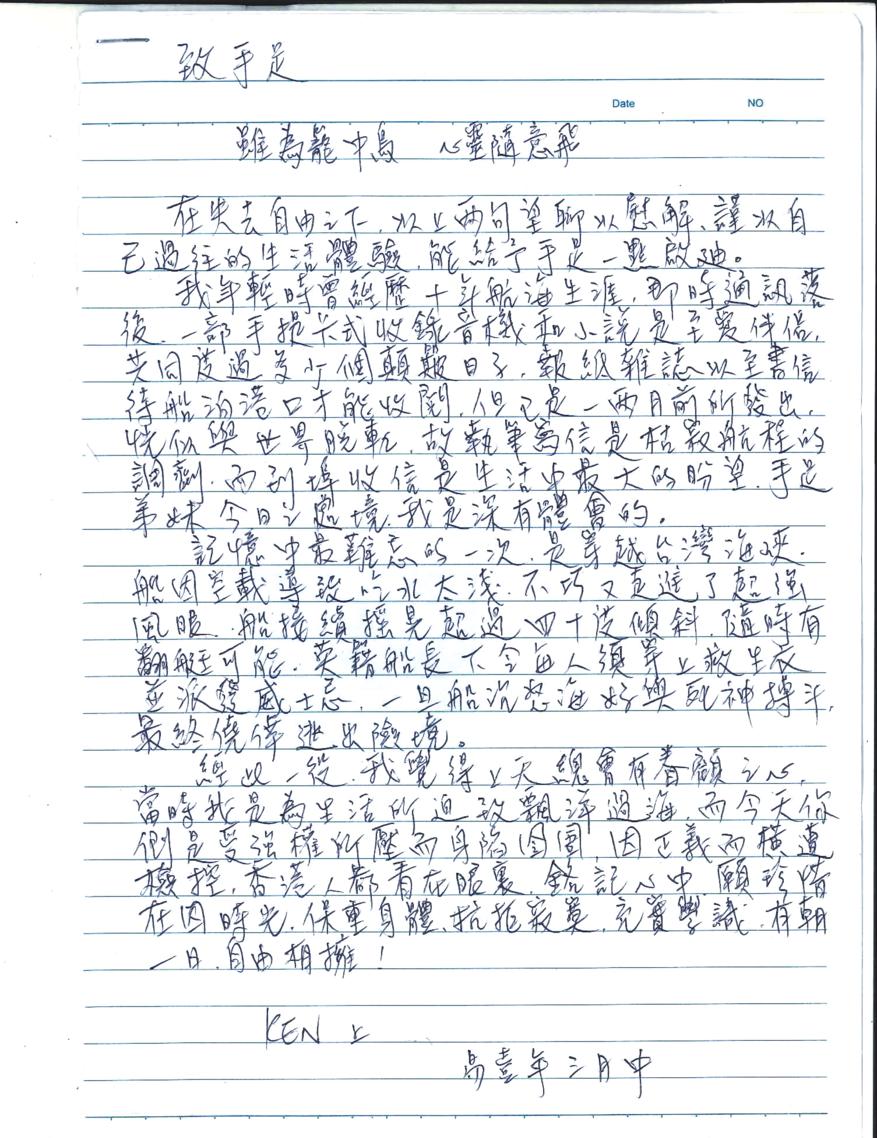 致手足
Date NO
雖為籠中鳥 心靈隨意飛
在失去自由之下，以上兩句望聊以慰解、謹以自
己過往的生活體驗，能給予手足一點啟迪。
我年輕時曾經歷十年航海生涯，那時通訊落
後，一部手提卡式收錄音機和小說是至愛伴侶，
共同渡過多少個顛簸日子，報紙雜誌以至書信
待船泊港口才能收閱，但已是一兩月前所發出，
恍似與世界脫軌，故執筆寫信是枯寂航程的
調劑，而到埠收信是生活中最大的盼望，手足
弟妹今日之處境，我是深有體會的。
記憶中最難忘的一次，是穿越台灣海峽，
船因空載導致吃水太淺，不巧又直進了超強
風眼，船接續搖晃超過四十度傾斜，隨時有
翻艇可能，英籍船長下令每人須穿上救生衣
並派發威士忌，一旦船沉怒海好與死神搏斗，
最終僥倖逃出險境。
經此一役，我覺得上天總會有眷顧之心，
當時我是為生活所迫致飄洋過海，而今天你
倆是受強權所壓而身陷囹圄，因正義而橫遭
檢控，香港人都看在眼裏，銘記心中，願珍惜
在囚時光，保重身體、抗拒寂寞，充實學識，有朝
一日，自由相擁！
KEN 上
年三月中